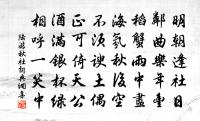 明朝逢社日
鄰曲樂年豐
稻蟹雨中盡
海氣秋後空
不須諛土偶
正可倚天公
酒滿銀杯綠
相呼一笑中
陸游秋社詞典網書